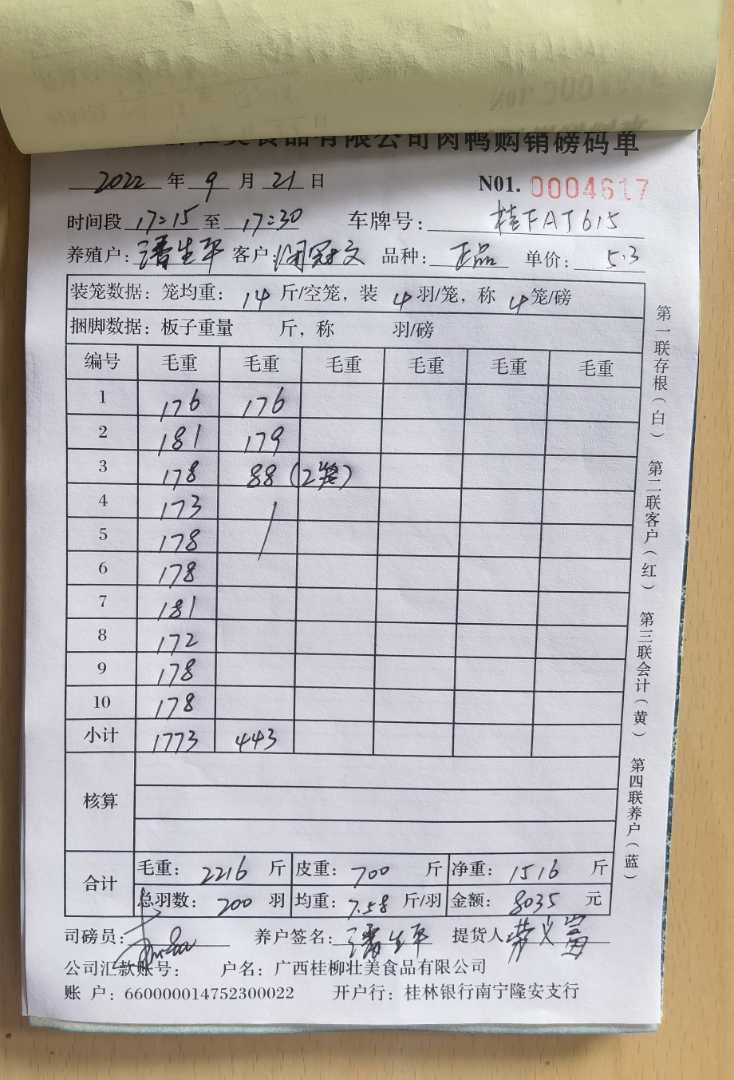 壮美食品有限公司肉鸭购销磅码单
2022 年 9 月 21 日 N01. 0004617
时间段 17:15 至 17:30 车牌号: 桂FAJ615
养殖户: 潘生平 客户: 文 品种: 正品 单价: 5.3
装笼数据: 笼均重: 14 斤/空笼, 装 4 羽/笼, 称 4 笼/磅
捆脚数据: 板子重量 斤, 称 羽/磅
编号 毛重 毛重 毛重 毛重 毛重 毛重
1 176 176
2 181 179
3 178 88 (2笼)
4 173
5 178
6 178
7 181
8 172
9 178
10 178
小计 1773 443
核算
合计 毛重: 2216 斤 皮重: 700 斤 净重: 1516 斤
总羽数: 200 羽 均重: 7.58 斤/羽 金额: 8035 元
司磅员: 养户签名: 潘生平 提货人:
公司汇款账号: 户名: 广西桂柳壮美食品有限公司
账 户: 660000014752300022 开户行: 桂林银行南宁隆安支行
第一联存根(白) 第二联客户(红) 第三联会计(黄) 第四联养户(蓝)